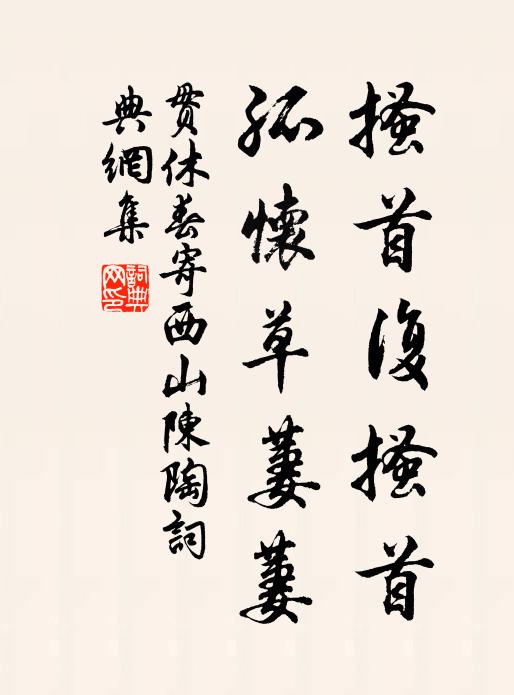 搔首復搔首
孤懷草萋萋
貫休春寄西山陳陶詞
典網集
詞典
网印